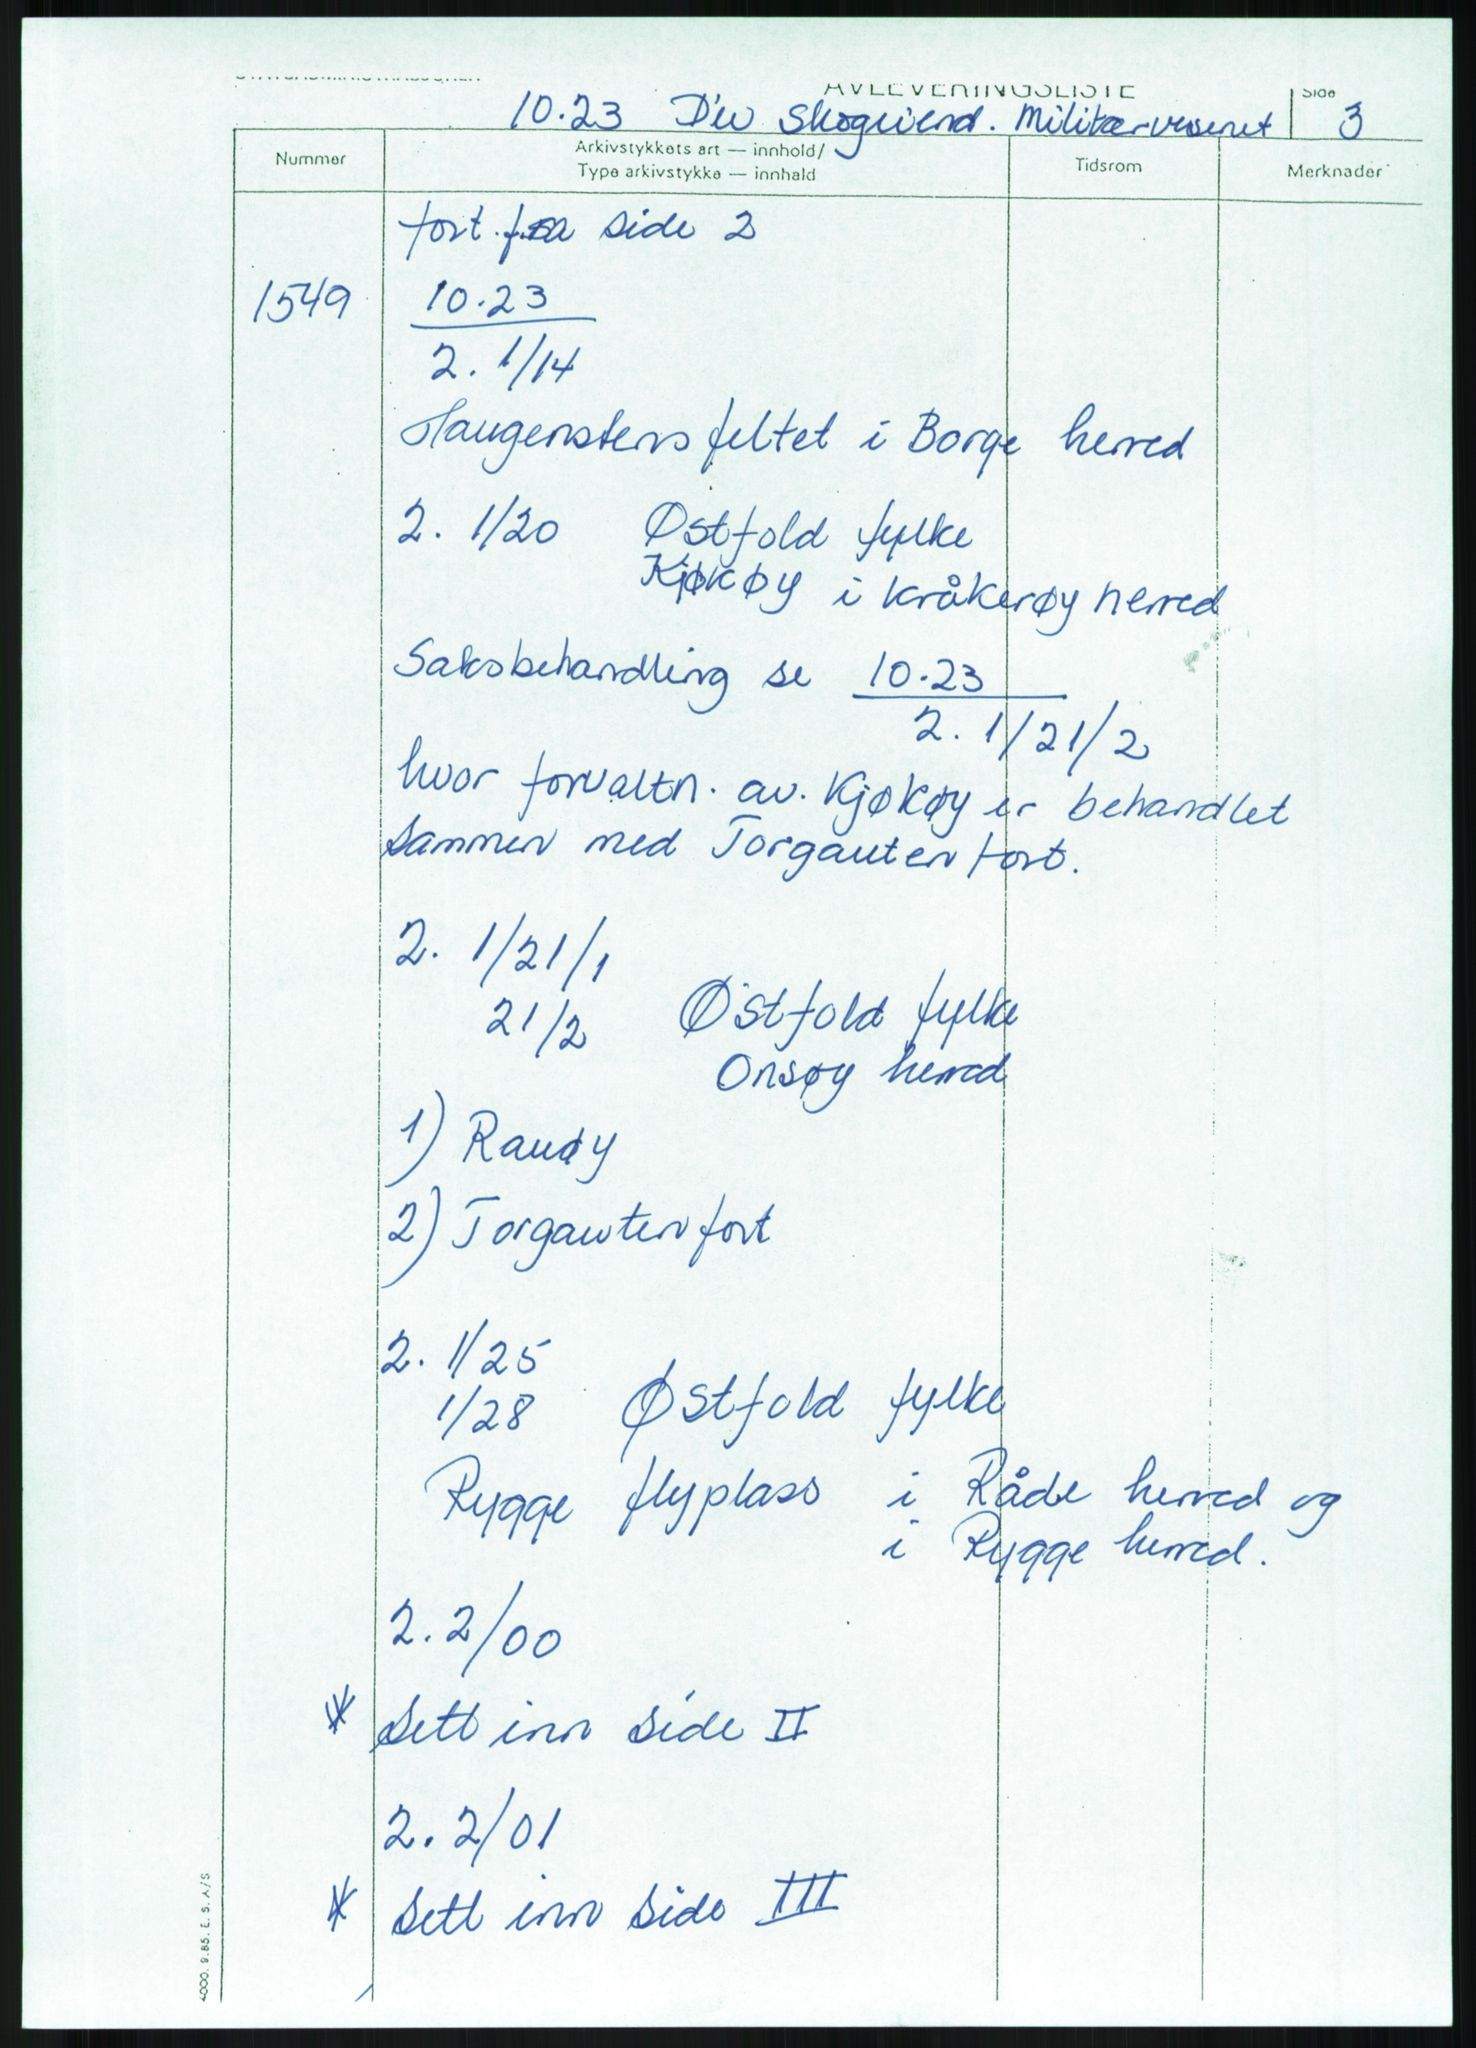 AVLEVERINGSLISTE
Side
10.23 Div Skogeiend. Militærvesenet 3
Nummer
Arkivstykkets art — innhold/
Type arkivstykke — innhald
Tidsrom
Merknader
fort. fra side 2
1549 10.23
2. 1/14
Haugenstensfeltet i Borge herred
2. 1/20 Østfold fylke
Kjøkøy i Kråkerøy herred
Saksbehandling se 10.23
2. 1/21/2
hvor forvaltn. av. Kjøkøy er behandlet
sammen med Torgauten fort.
2. 1/21/1
21/2 Østfold fylke
Onsøy herred
1) Rauøy
2) Torgauten fort
2. 1/25
1/28 Østfold fylke
Rygge flyplass i Råde herred og
i Rygge herred.
2.2/00
* Sett inn side II
2.2/01
* Sett inn side III
4000. 9.85. E. S. A/S